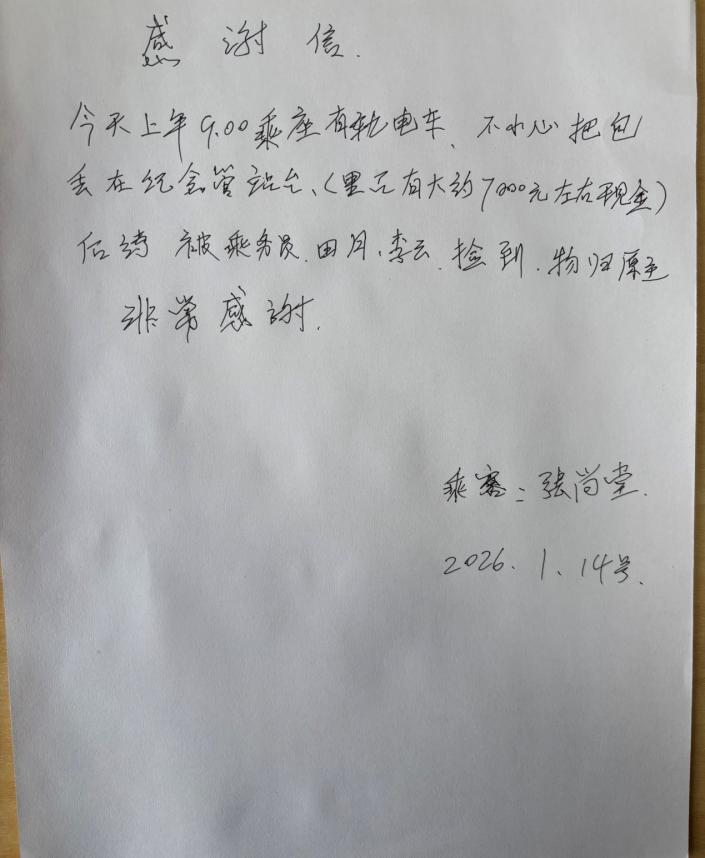 感谢信.
今天上午9.00乘座有轨电车、不小心把包
丢在纪念管站台、(里面有大约7000元左右现金)
后续被乘务员.田月、李云.捡到.物归原主
非常感谢.
乘客:张尚堂.
2026.1、14号.